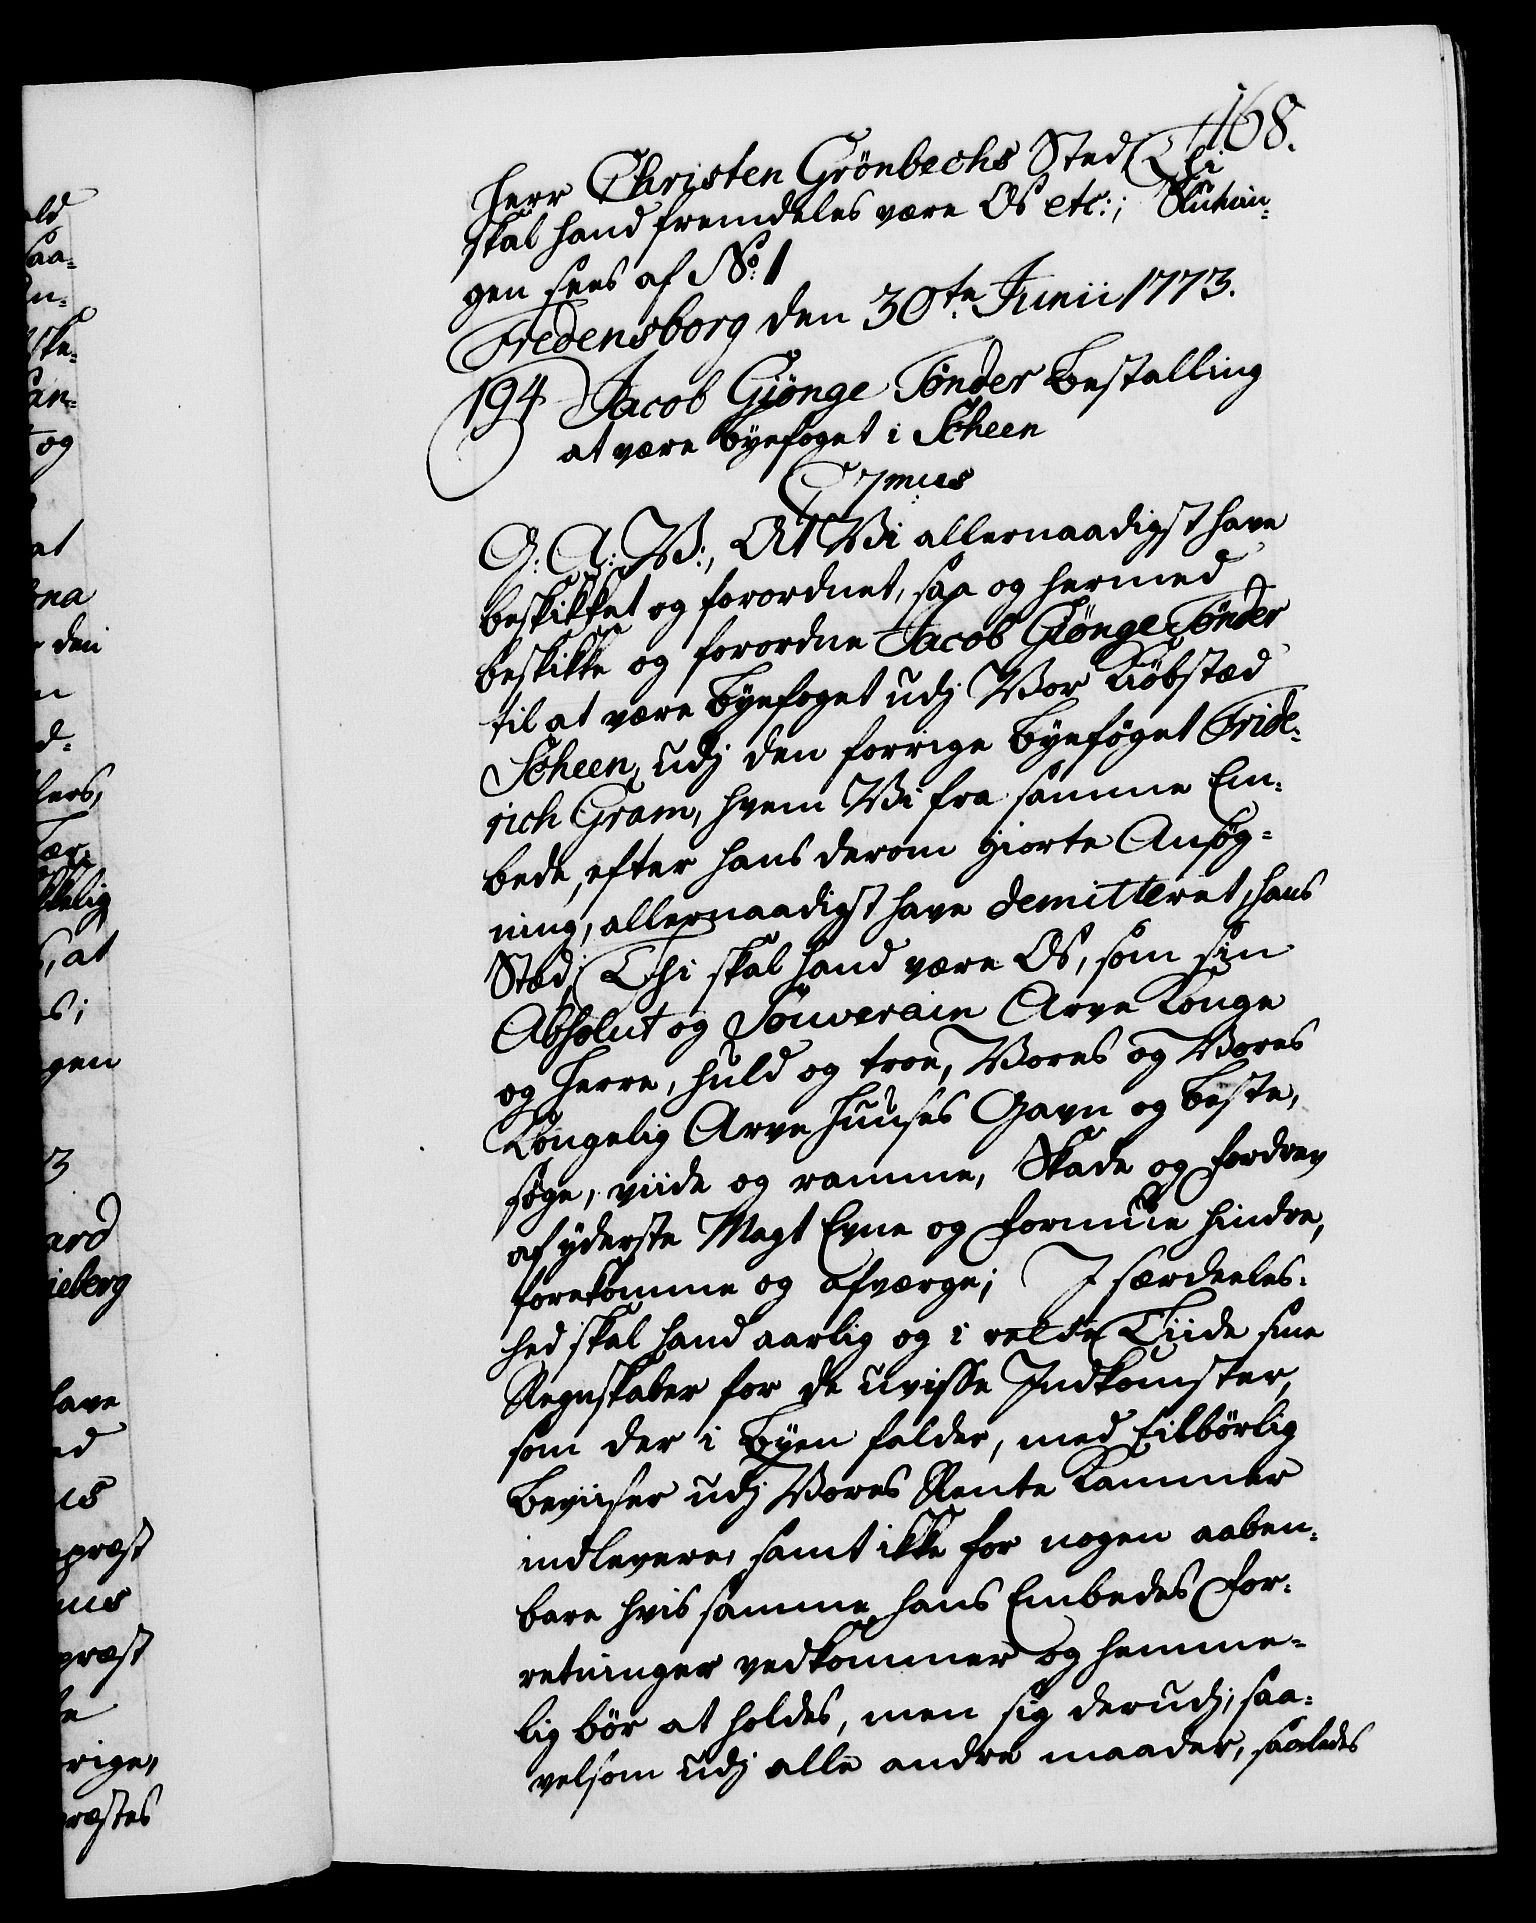 168.
Herr Christen Grönbechs Sted, Thi
skal hand fremdeles være Os etc:; Slutnin-
gen sees af No: 1
Fredensborg den 30te Junii 1773.
194 Jacob Giönge Tönder Bestalling
at være Byefoget i Scheen
C 7mus
G: A: V:, At Vi allernaadigst have
beskikket og forordnet, saa og hermed
beskikke og forordne Jacob Giönge Tönder
til at være Byefoget udj Vor Kiöbstæd
Scheen, udj den forrige Byefoget Fride-
rich Gram, hvem Vi fra samme Em-
bede, efter hans derom giorte Ansøg-
ning, allernaadigst have demitteret, hans
Sted; Thi skal hand være Os, som sin
Absolut og Souverain Arve Konge
og Herre, huld og troe, Vores og Vores
Kongelig Arve Huuses Gavn og beste,
søge, viide og ramme, Skade og fordærv
af yderste Magt Evne og Formue hindre,
forekomme og afværge; I særdeeles-
hed skal hand aarlig og i rette Tiide sine
Regnskaber for de uvisse Indkomster,
som der i Byen falder, med tilbörlig
Beviiser udj Vores Rente Kammer
indlevere, samt ikke for nogen aaben-
bare hvis samme hans Embedes For-
retninger vedkommer og hemme-
lig bör at holdes, men sig derudj, saa-
velsom udj alle andre maader, saaledes
ald
Saa-
og
at
den
n
d-
at
gen
ard
ieberg
have
ed
us
præst
præst
rige,
ræstes